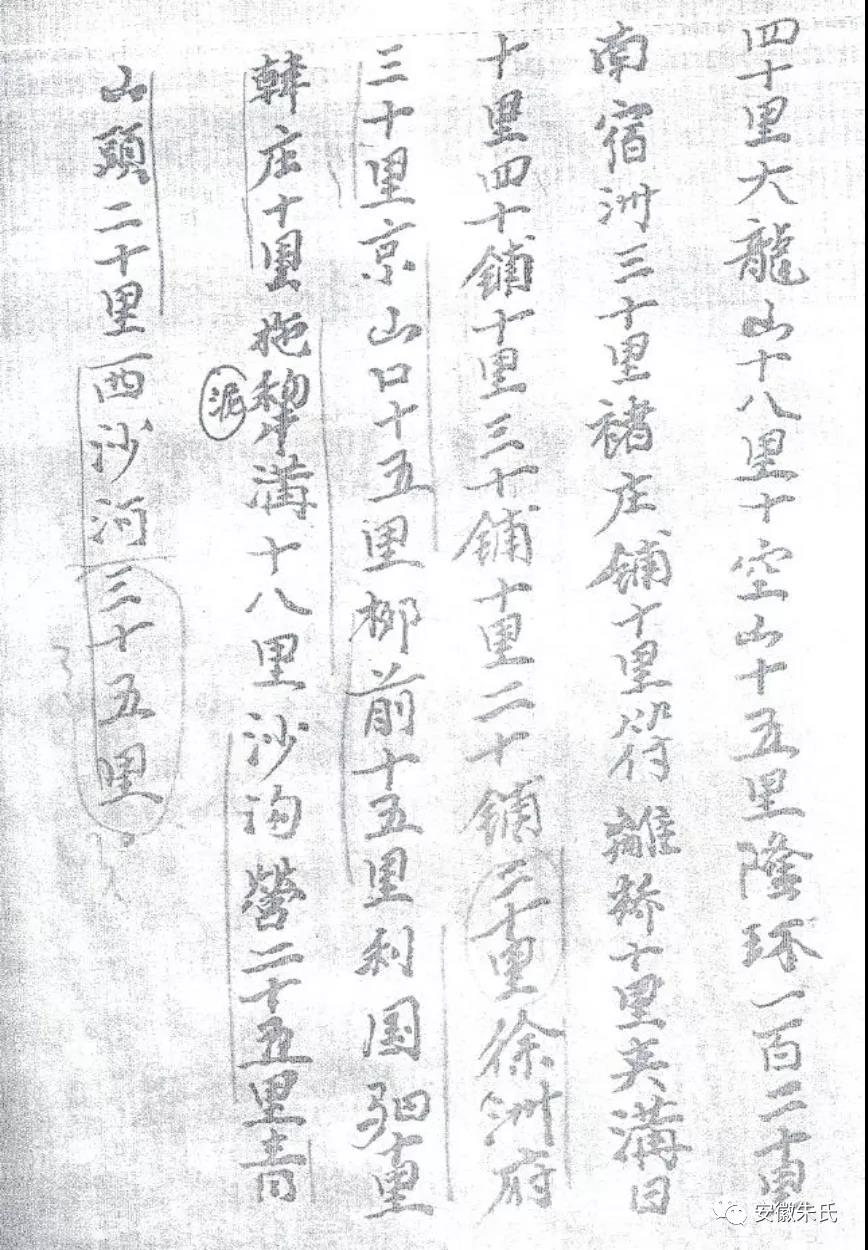 四十里大龍山十八里十空山十五里隆环一百二十里
南宿洲三十里褚庄铺十里符離桥十里夹溝日
十里四十铺十里三十铺十里二十铺二十里徐洲府
三十里京山口十五里柳前十五里利国驷十里
韓庄十里拖犂溝十八里沙沟营二十五里青
泥
山頭二十里西沙河三十五里。
安徽朱氏